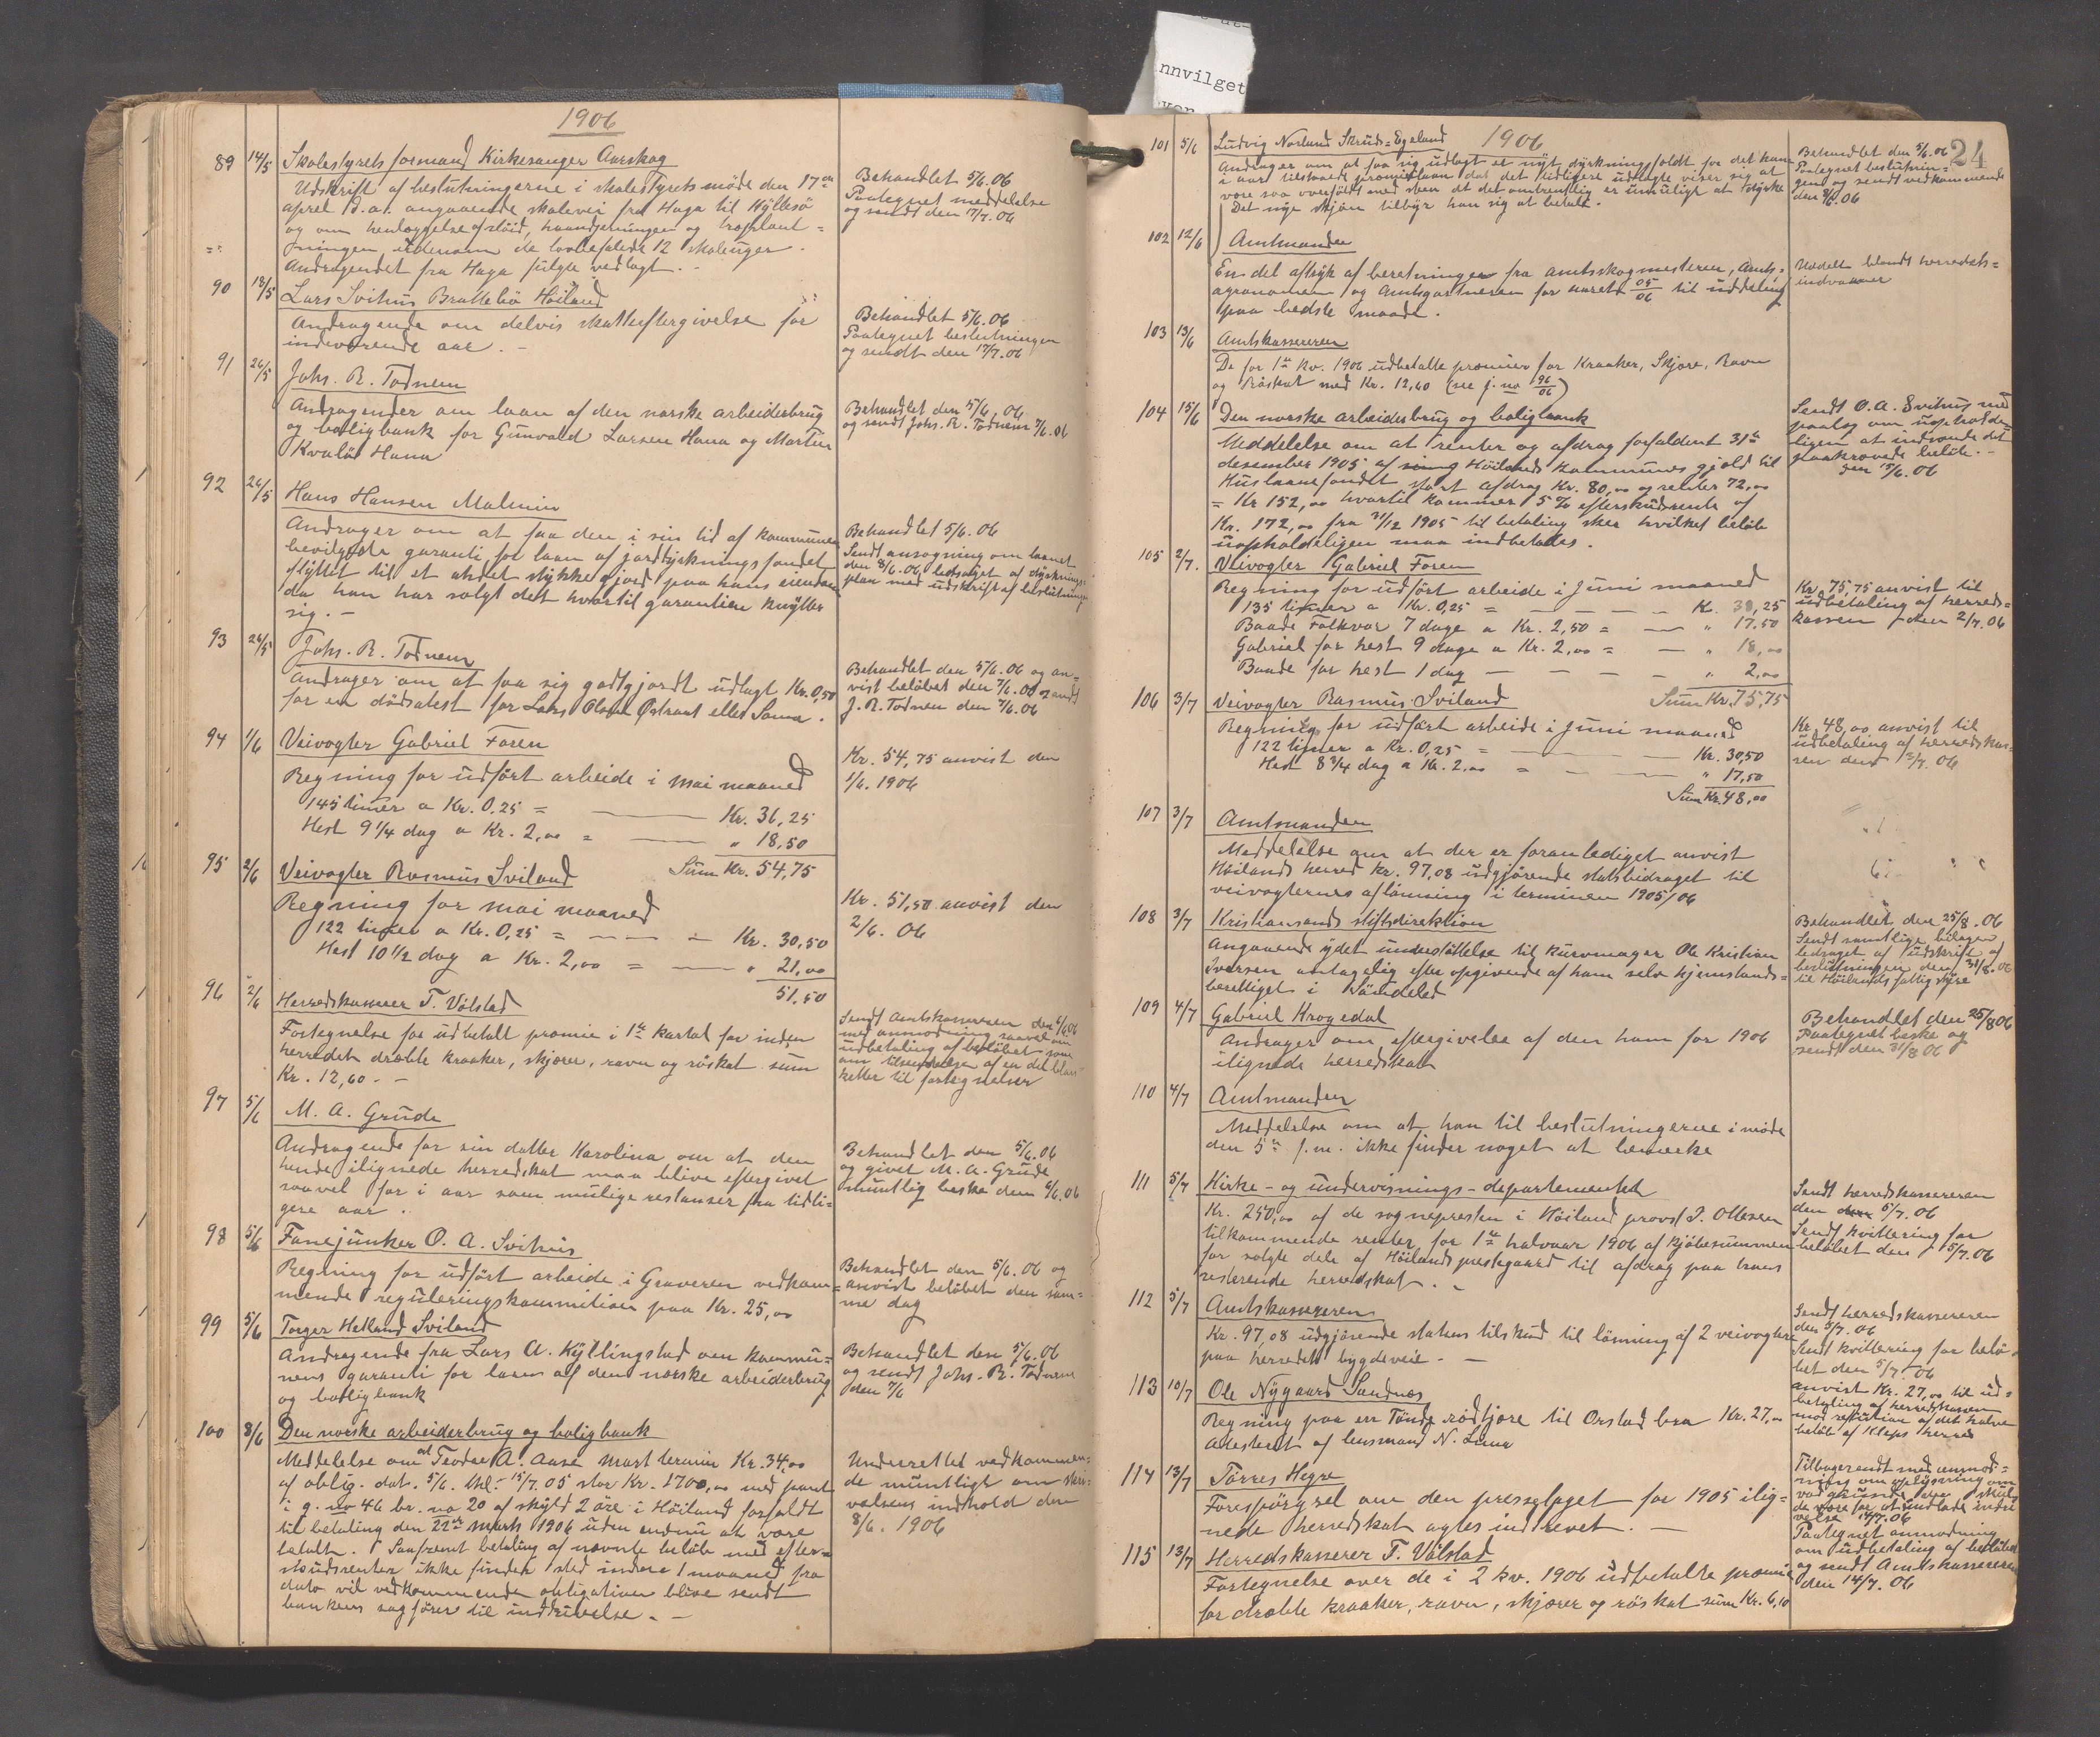 1906
89 14/5 Skolestyrets formand Kirkesanger Aarskog
Udskrift af beslutningerne i skolestyrets møde den 17de
april d.a. angaaende skolevei fra Haga til Kyllesö
og om henlæggelse af slöid, haandgjerningen og
udenom de lovbefalede 12 skoleuger.
Andragendet fra Haga fulgte vedlagt. -
Behandlet 5/6. 06
Paategnet meddelelse
og sendt den 17/7. 06
90 18/5 Lars Svihus Brattebö Höiland
Andragende om delvis skatteeftergivelse for
indeværende aar. -
Behandlet 5/6. 06
Paategnet beslutningen
og sendt den 17/7. 06
91 26/5 Johs. R. Todnem
Andragender om laan af den norske arbeiderbrug
og boligbank for Gunvald Larsen Hana og Martin
Kvalö Hana
Behandlet den 5/6. 06
og sendt Johs. R. Todnem 7/6. 06
92 26/5 Hans Hansen Malmin
Andrager om at faa den i sin tid af kommunen
bevilgede garanti for laan af jorddyrkningsfondet
flyttet til et andet stykke jord paa hans eiendom
da han har solgt det hvortil garantien knytter
sig. -
Behandlet 5/6. 06
Sendt ansøgning om laanet
den 8/6. 06 ledsaget af dyrknings-
plan med udskrift af beslutningen
93 26/5 Johs. R. Todnem
Andrager om at faa sig godtgjordt udlagt Kr. 0,50
for en dödsatest for Lars Olsen Østraat eller Soma.
Behandlet den 5/6. 06 og an-
vist beløbet den 7/6. 06 og sendt
J. R. Todnem den 7/6. 06
94 1/6 Veivogter Gabriel Foren
Regning for udført arbeide i mai maaned
145 timer a Kr. 0,25 = — Kr. 36,25
Hest 9 1/4 dag a Kr. 2,00 = — " 18,50
Sum Kr. 54,75
Kr. 54,75 anvist den
1/6. 1906
95 2/6 Veivogter Rasmus Sviland
Regning for mai maaned
122 timer a Kr. 0,25 = — — — Kr. 30,50
Hest 10 1/2 dag a Kr. 2,00 = — " 21,00
51,50
Kr. 51,50 anvist den
2/6. 06
96 2/6 Herredskasserer T. Vølstad
Fortegnelse for udbetalt præmie i 1ste kvartal for inden
herredet dræbte kraaker, skjærer, ravn og røskat sum
Kr. 12,60. -
Sendt Amtskassereren den 6/6 06
med anmodning saavel om
udbetaling af beløbet som
om tilsendelsen af en del blan-
ketter til fortegnelser
97 5/6 M. A. Grude
Andragende for sin datter Karolina om at den
hende ilignede herredskat maa blive eftergivet
saavel for i aar som mulige restanser fra tidli-
gere aar.
Behandlet den 5/6. 06
og givet M. A. Grude
mundtlig beske den 6/6. 06
98 5/6 Fanejunker O. A. Svihus
Regning for udført arbeide i Graveren vedkom-
mende reguleringskommitioen paa Kr. 25,00
Behandlet den 5/6. 06 og
anvist beløbet den sam-
me dag
99 5/6 Torger Helland Sviland
Andragende fra Lars A. Kyllingstad om kommu-
nens garanti for laan af den norske arbeiderbrug
og boligbank
Behandlet den 5/6. 06
og sendt Johs. R. Todnem
den 7/6
100 8/6 Den norske arbeiderbrug og boligbank
Meddelelse om at Teodor A. Aase mars termin Kr. 34,00
af oblig. dat. 5/6. thl. 15/7. 05 stor Kr. 1700,00 med pant
i g. no 46 br. no 20 af skyld 2 øre i Höiland forfaldt
til betaling den 22de mars 1906 uden endnu at være
betalt. Saafremt betaling af nævnte beløb med efter-
skudsrenter ikke finder sted inden 1 maaned fra
dato vil vedkommende obligation blive sendt
bankens sagfører til inddrivelse. -
Underrettet vedkommen-
de mundtligt om skri-
velsens indhold den
8/6. 1906
nnvilget
24
1906
101 5/6 Ludvig Norland Skruds-Egeland
Andrager om at faa sig udlagt et nyt dyrkningsfeldt for det ham
i aar tilstaaede præmielaan da det tidligere udlagte viser sig at
være saa overfyldt med sten at det omtrentlig er umuligt at dyrke
Det nye skjøn tilbyr han sig at betale.
Behandlet den 5/6. 06
Paategnet beslutnin-
gen og sendt vedkommende
den 9/6. 06
102 12/6 Amtmanden
En del aftryk af beretninger fra amtsskogmesteren, Amts-
agronomen og Amtsgartneren for aaret 05/06 til uddeling
paa bedste maade.
Uddelt blandt herredets-
indvaaner
103 13/6 Amtskassereren
De for 1ste kv. 1906 udbetalte præmier for Kraaker, Skjære, Ravn
og Röskat med Kr. 12,60 (se j. no 96/06)
104 15/6 Den norske arbeiderbrug og boligbank
Meddelelse om at renter og afdrag forfaldent 31te
desember 1905 af Höilands kommunes gjæld til
Huslaanefondet stort afdrag Kr. 80,00 og renter 72,00
= Kr 152,00 hvortil kommer 5% efterskudsrente af
Kr. 172,00 fra 31/12 1905 til betaling sker hvilket beløb
uopholdeligen maa indbetales.
Sendt O. A. Svihus med
paalæg om uopholde-
ligen at indsende det
paakrævede beløb. -
den 15/6. 06
105 2/7. Veivogter Gabriel Foren
Regning for udført arbeide i Juni maaned
135 timer a Kr. 0,25 = — — — — Kr. 38,25
Baade Folkvor 7 dage a Kr. 2,50 = — " 17,50
Gabriel for hest 9 dage a Kr. 2,00 = — " 18,00
Baade for hest 1 dag — — — — " 2,00
Sum Kr. 75,75
Kr. 75,75 anvist til
udbetaling af herreds-
kassen den 2/7. 06
106 3/7 Veivogter Rasmus Sviland
Regning for udført arbeide i Juni maaned
122 timer a Kr. 0,25 = — Kr. 30,50
Hest 8 3/4 dag a Kr. 2,00 = — " 17,50
Sum Kr. 48,00
Kr. 48,00 anvist til
udbetaling af herredskas-
sen den 3/7. 06
107 3/7 Amtmanden
Meddelelse om at der er foranlediget anvist
Höilands herred Kr. 97,08 udgjørende statsbidraget til
veivogternes aflønning i terminen 1905/06
108 3/7 Kristiansands stiftsdirektion
Angaaende ydet understøttelse til kurvmager Ole Kristian
Iversen antagelig efter opgivende af ham selv hjemstands-
berettiget i Söndeled
Behandlet den 25/8. 06
Sendt samtlige bilagen
ledsaget af udskrift af
beslutningen den 31/8. 06
til Höilands fattigstyre
109 4/7 Gabriel Krogedal
Andrager om eftergivelse af den ham for 1906
ilignede herredskat
Behandlet den 25/8 06
Paategnet beske og
sendt den 31/8 06
110 4/7 Amtmanden
Meddelelse om at han til beslutningerne i møde
den 5te f.m. ikke finder noget at bemerke
111 5/7 Kirke- og undervisnings-departementet
Kr. 250,00 af de sognepresten i Höiland provst P. Ottesen
tilkommende renter for 1ste halvaar 1906 af kjøbesummen
for solgte dele af Höilands prestegaard til afdrag paa hans
resterende herredskat. -
Sendt herredskassereren
den 5/7. 06
Sendt kvittering for
beløbet den 5/7. 06
112 5/7 Amtskassereren
Kr. 97,08 udgjørende statens tilskud til lønning af 2 veivogtere
paa herredets bygdeveie. -
Sendt herredskassereren
den 5/7. 06
Sendt kvittering for belö-
bet den 5/7. 06
113 10/7 Ole Nygaard Sandnes
Regning paa en Tønde rødtjære til Orstad bru Kr. 27,00
Atesteret af lensmand N. Lima
anvist Kr. 27,00 til ud-
betaling af herredskassen
mod refution af det halve
beløb af Kleps herred
114 13/7 Tørres Hegre
Forespørgsel om den presselaget for 1905 ilig-
nede herredskat agtes inddrevet. -
Tilbagesendt med anmod-
ning om oplysning om
være for at undlade inddri
velse 14/7. 06
115 13/7 Herredskasserer T. Vølstad
Fortegnelse over de i 2 kv. 1906 udbetalte præmie
for dræbte kraaker, ravn, skjærer og röskat sum Kr. 6,10
Paategnet anmodning
om udbetaling af beløbet
og sendt Amtskassereren
den 14/7. 06